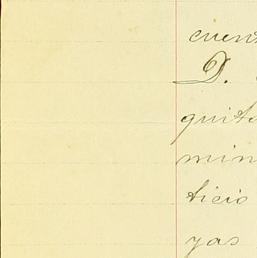 cuen
D.
quita
min
ticio
yas